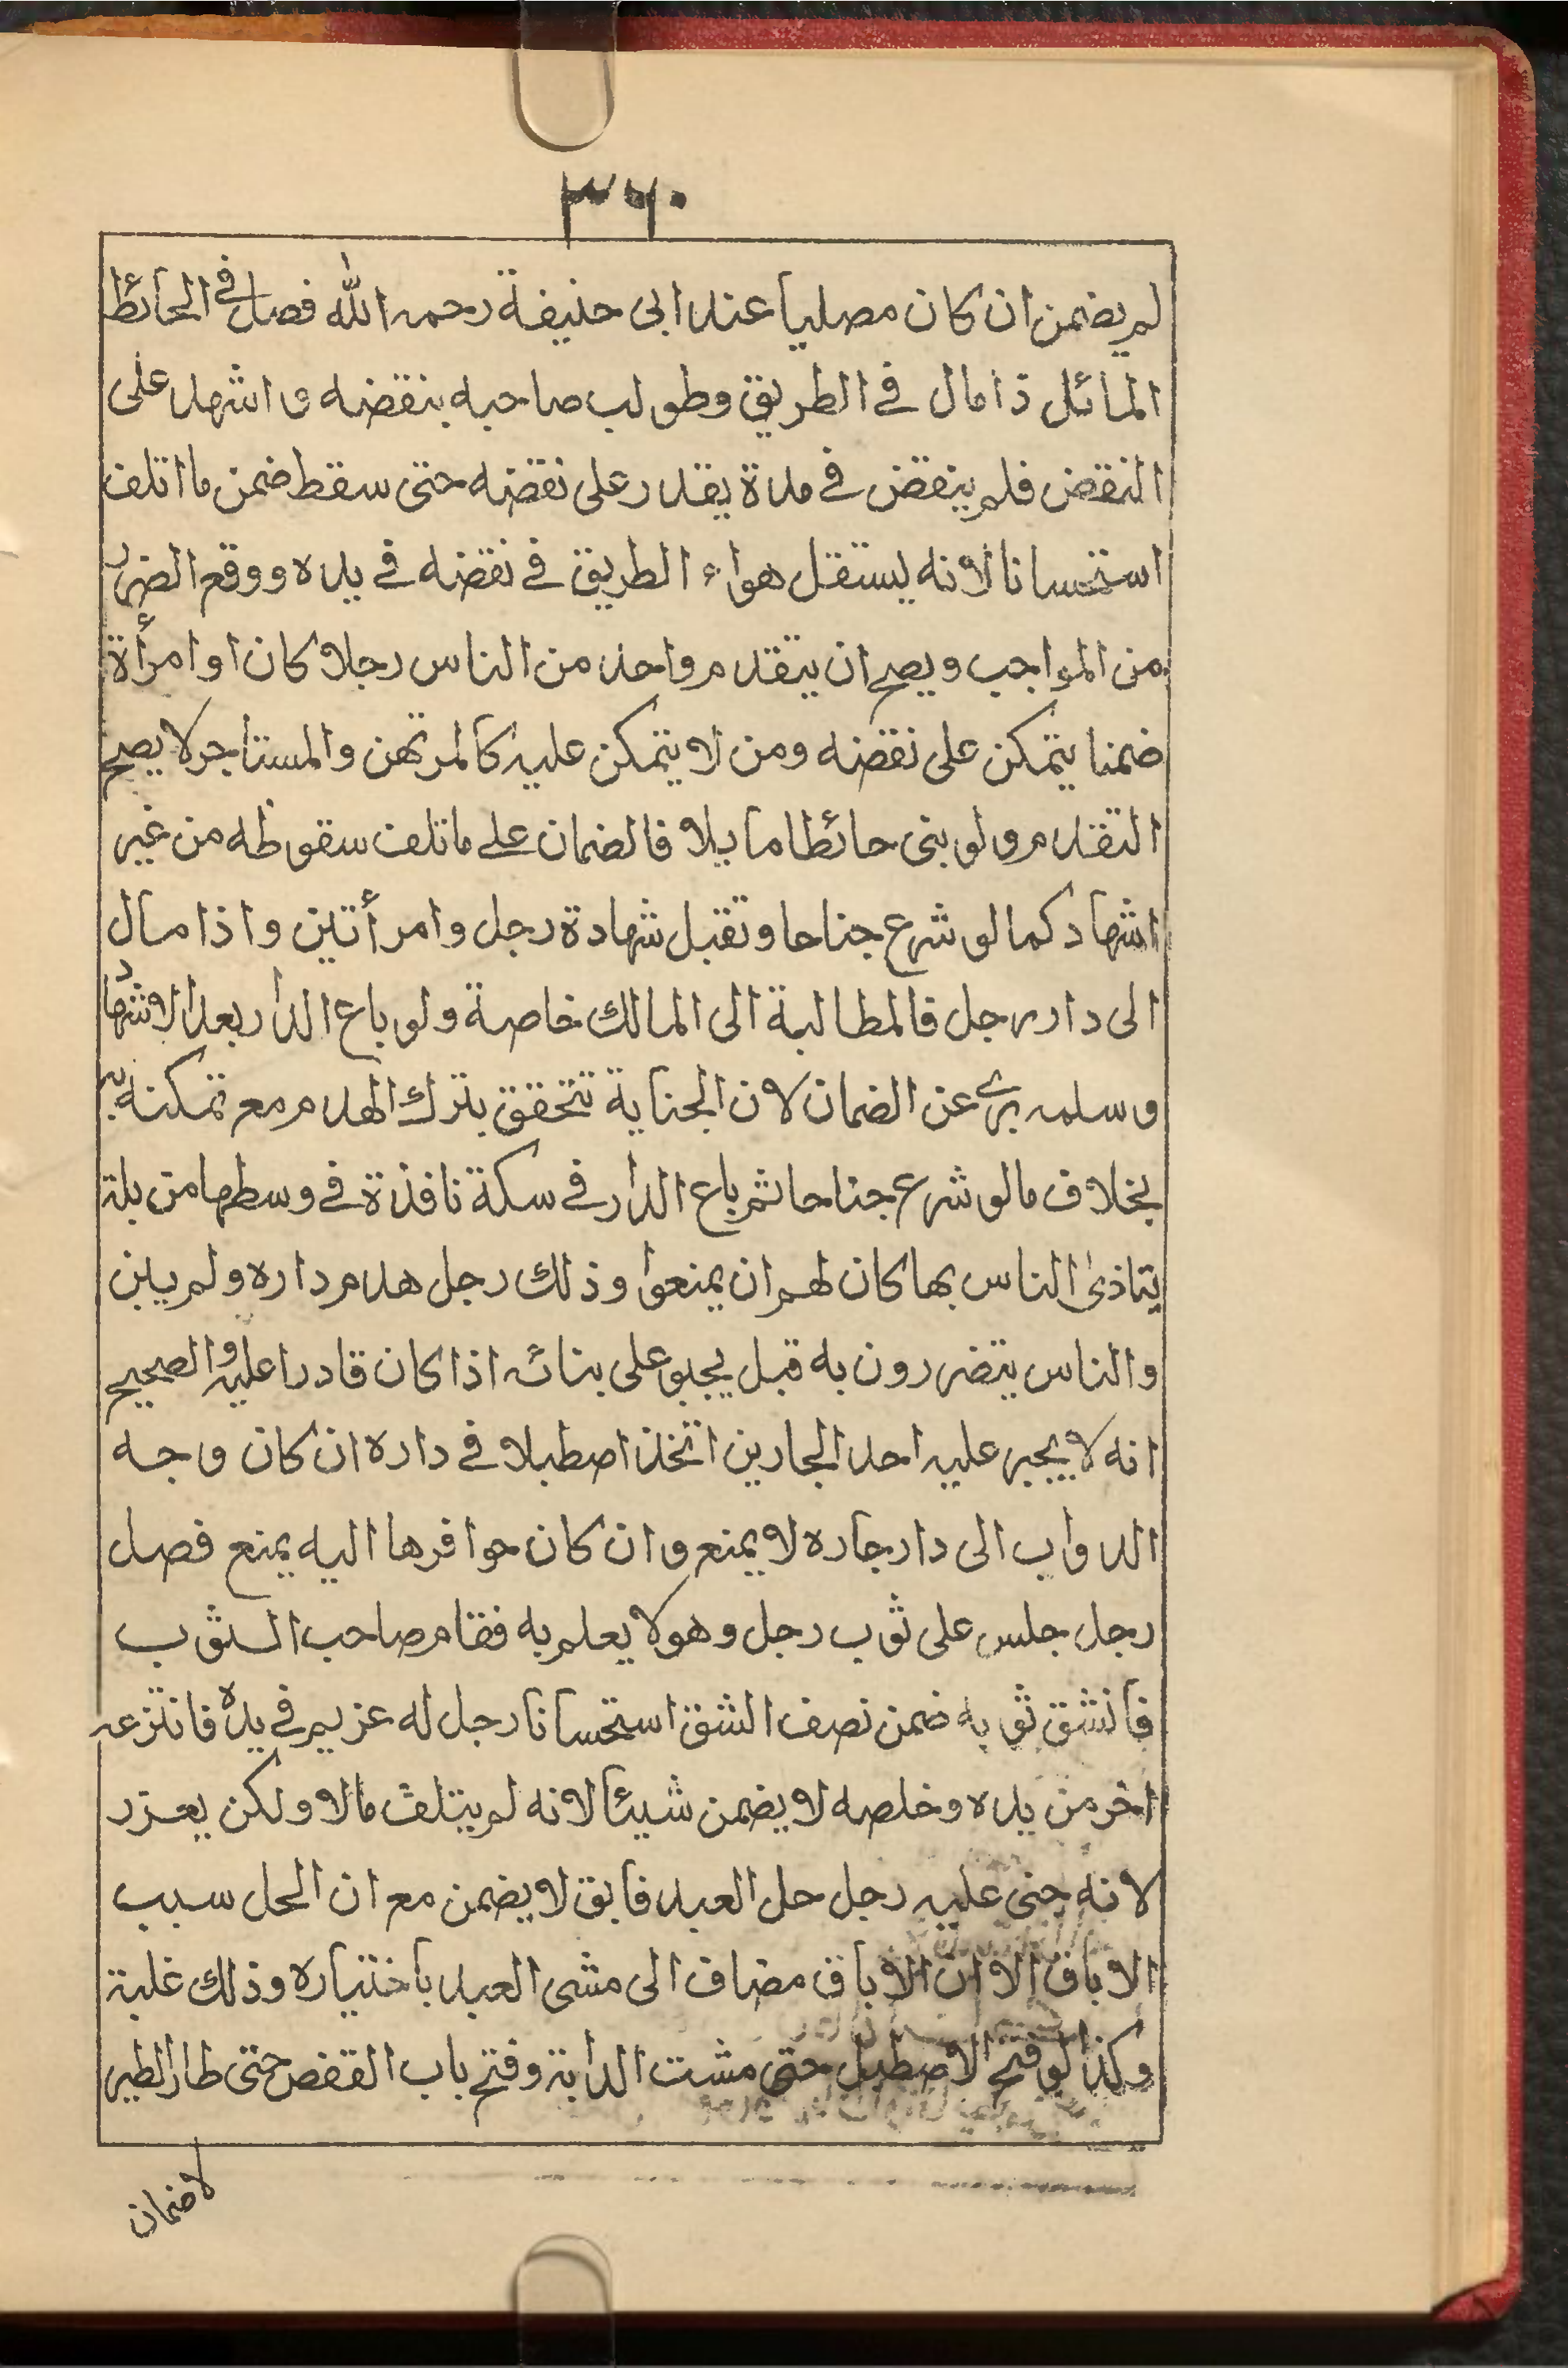 ٣٦٠
لم يضمن ان كان مصليا عند ابى حنيفة رحمه الله فصل فى الحائط
المائل ذا مال فى الطريق وطولب صاحبه بنقضه واشهد على
النقض فلم ينقض فى مدة يقدر على نقضه حتى سقط ضمن ما اتلف
استحسانا لانه يستقل هواء الطريق فى نقضه فى يده ووقع الضرر
من المواجب ويصح ان يتقدم واحد من الناس رجلا كان او امرأة
ضمنا يتمكن على نقضه ومن لا يتمكن عليه كالمرتهن والمستاجر لا يصح
التقدم ولو بنى حائطا مايلا فالضمان على ما تلف سقوطه من غير
اشهاد كما لو شرع جناحا وتقبل شهادة رجل وامرأتين واذا مال
الى دار رجل فالمطالبة الى المالك خاصة ولو باع الدار بعد الاشهاد
وسلمه برئ عن الضمان لان الجناية تتحقق بترك الهدم مع تمكنه
بخلاف ما لو شرع جناحا ثم باع الدار فى سكة نافذة فى وسطها من بلة
يتاذى الناس بها كان لهم ان يمنعوا وذلك رجل هدم داره ولم يبن
والناس يتضررون به قبل يجبو على بنائه اذا كان قادرا عليه والصحيح
انه لا يجبر عليه احد الجارين اتخذ اصطبلا فى داره ان كان وجه
الدواب الى دار جاره لا يمنع وان كان حوافرها اليه يمنع فصل
رجل جلس على ثوب رجل وهو لا يعلم به فقام صاحب الثوب
فانشق ثوبه ضمن نصف الشق استحسانا رجل له عزيم فى يده فانتزعه
اخر من يده وخلصه لا يضمن شيئا لانه لم يتلف مالا ولكن يعزر
لانه جنى عليه رجل حل العبد فابق لا يضمن مع ان الحل سبب
الاباق الا ان الاباق مضاف الى مشى العبد باختياره وذلك غلبة
وكذا لو فتح الاصطبل حتى مشت الدابة وفتح باب القفص حتى طار الطير
لا ضمان